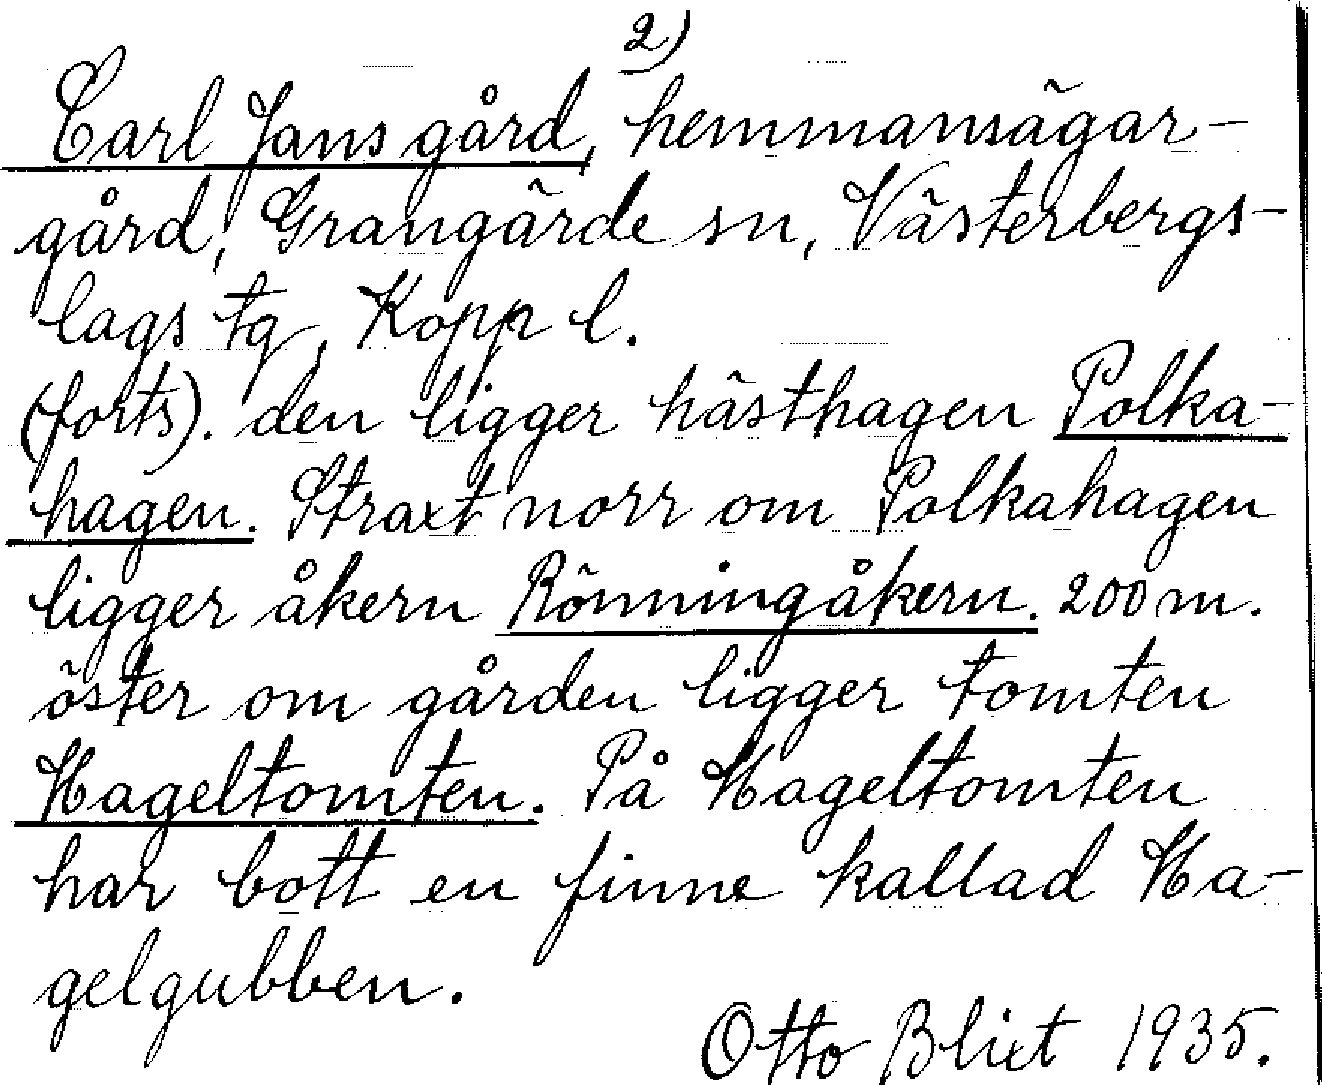 2)
Carl Jans gård, hemmansägar-
gård, Grangärde sn, Västerbergs-
lags tg, Kopp l.
(forts). den ligger hästhagen Polka-
hagen. Straxt norr om Polkahagen
ligger åkern Rönningåkern. 200 m.
öster om gården ligger tomten
Hageltomten. På Hageltomten
har bott en finne kallad Ha-
gelgubben.
Otto Blixt 1935.